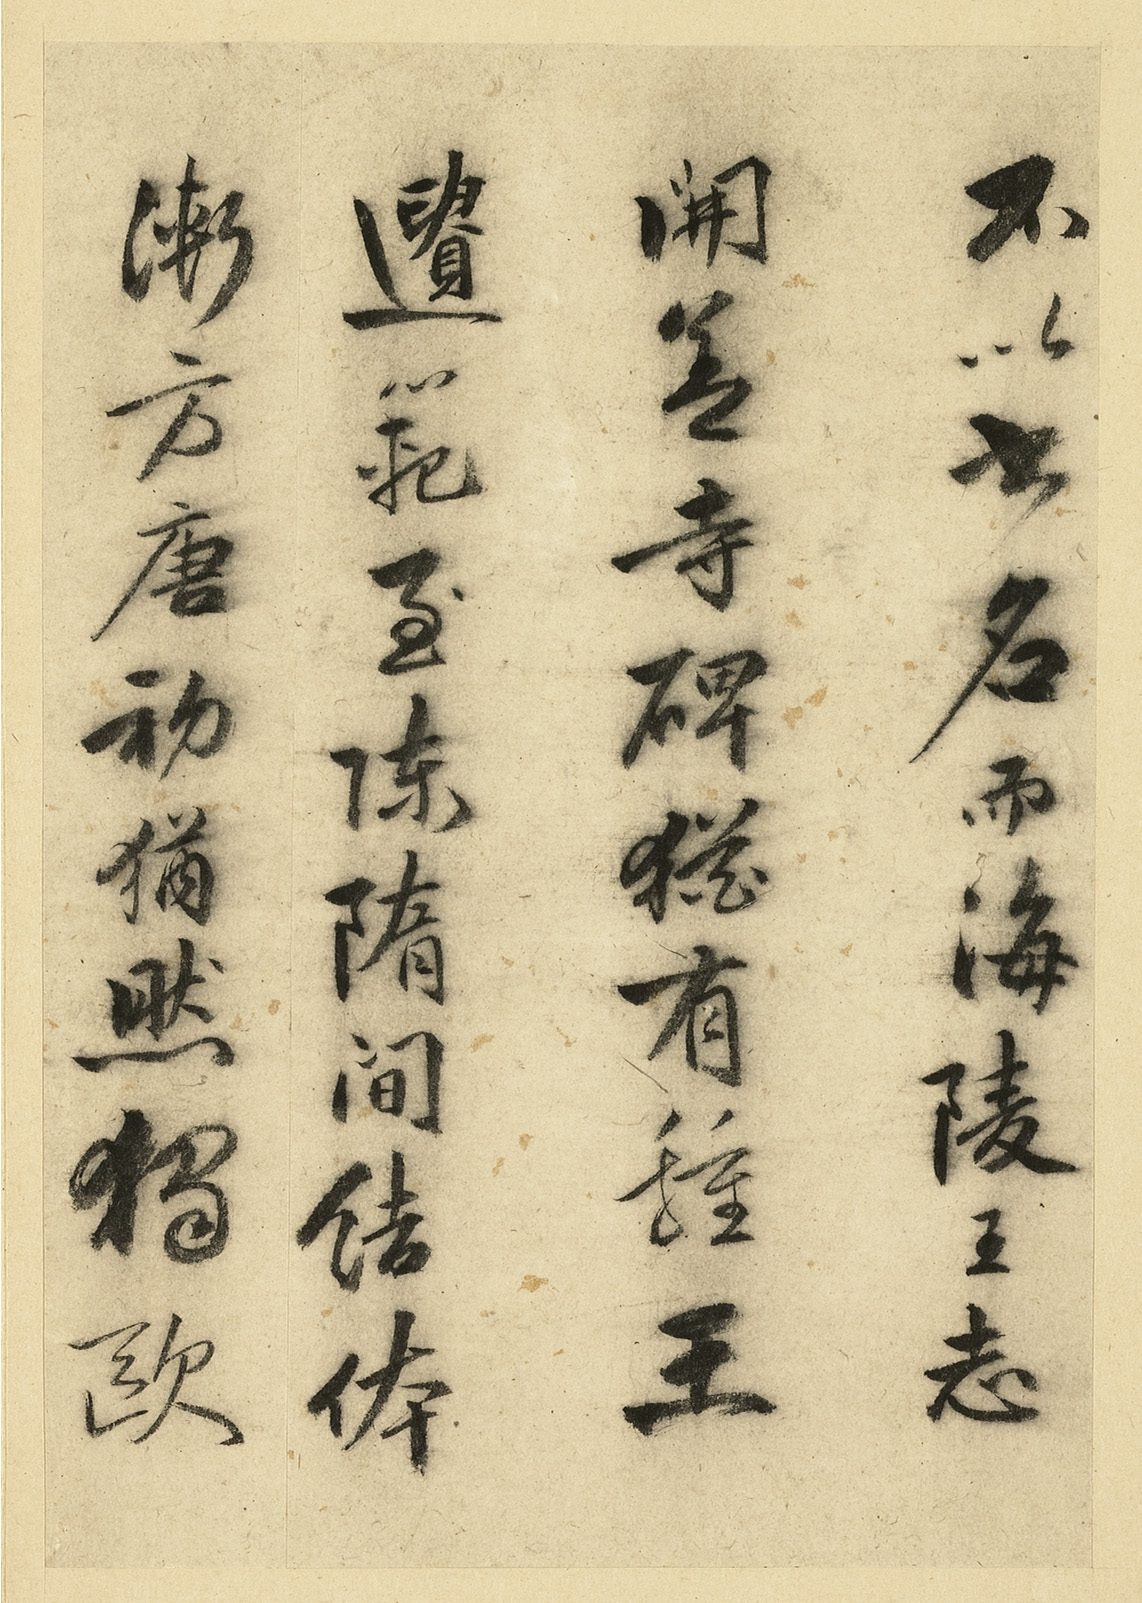 不以書名而海陵王志
開善寺碑猶有鍾王
遺範至陳隋間結體
漸方唐初猶然獨歐